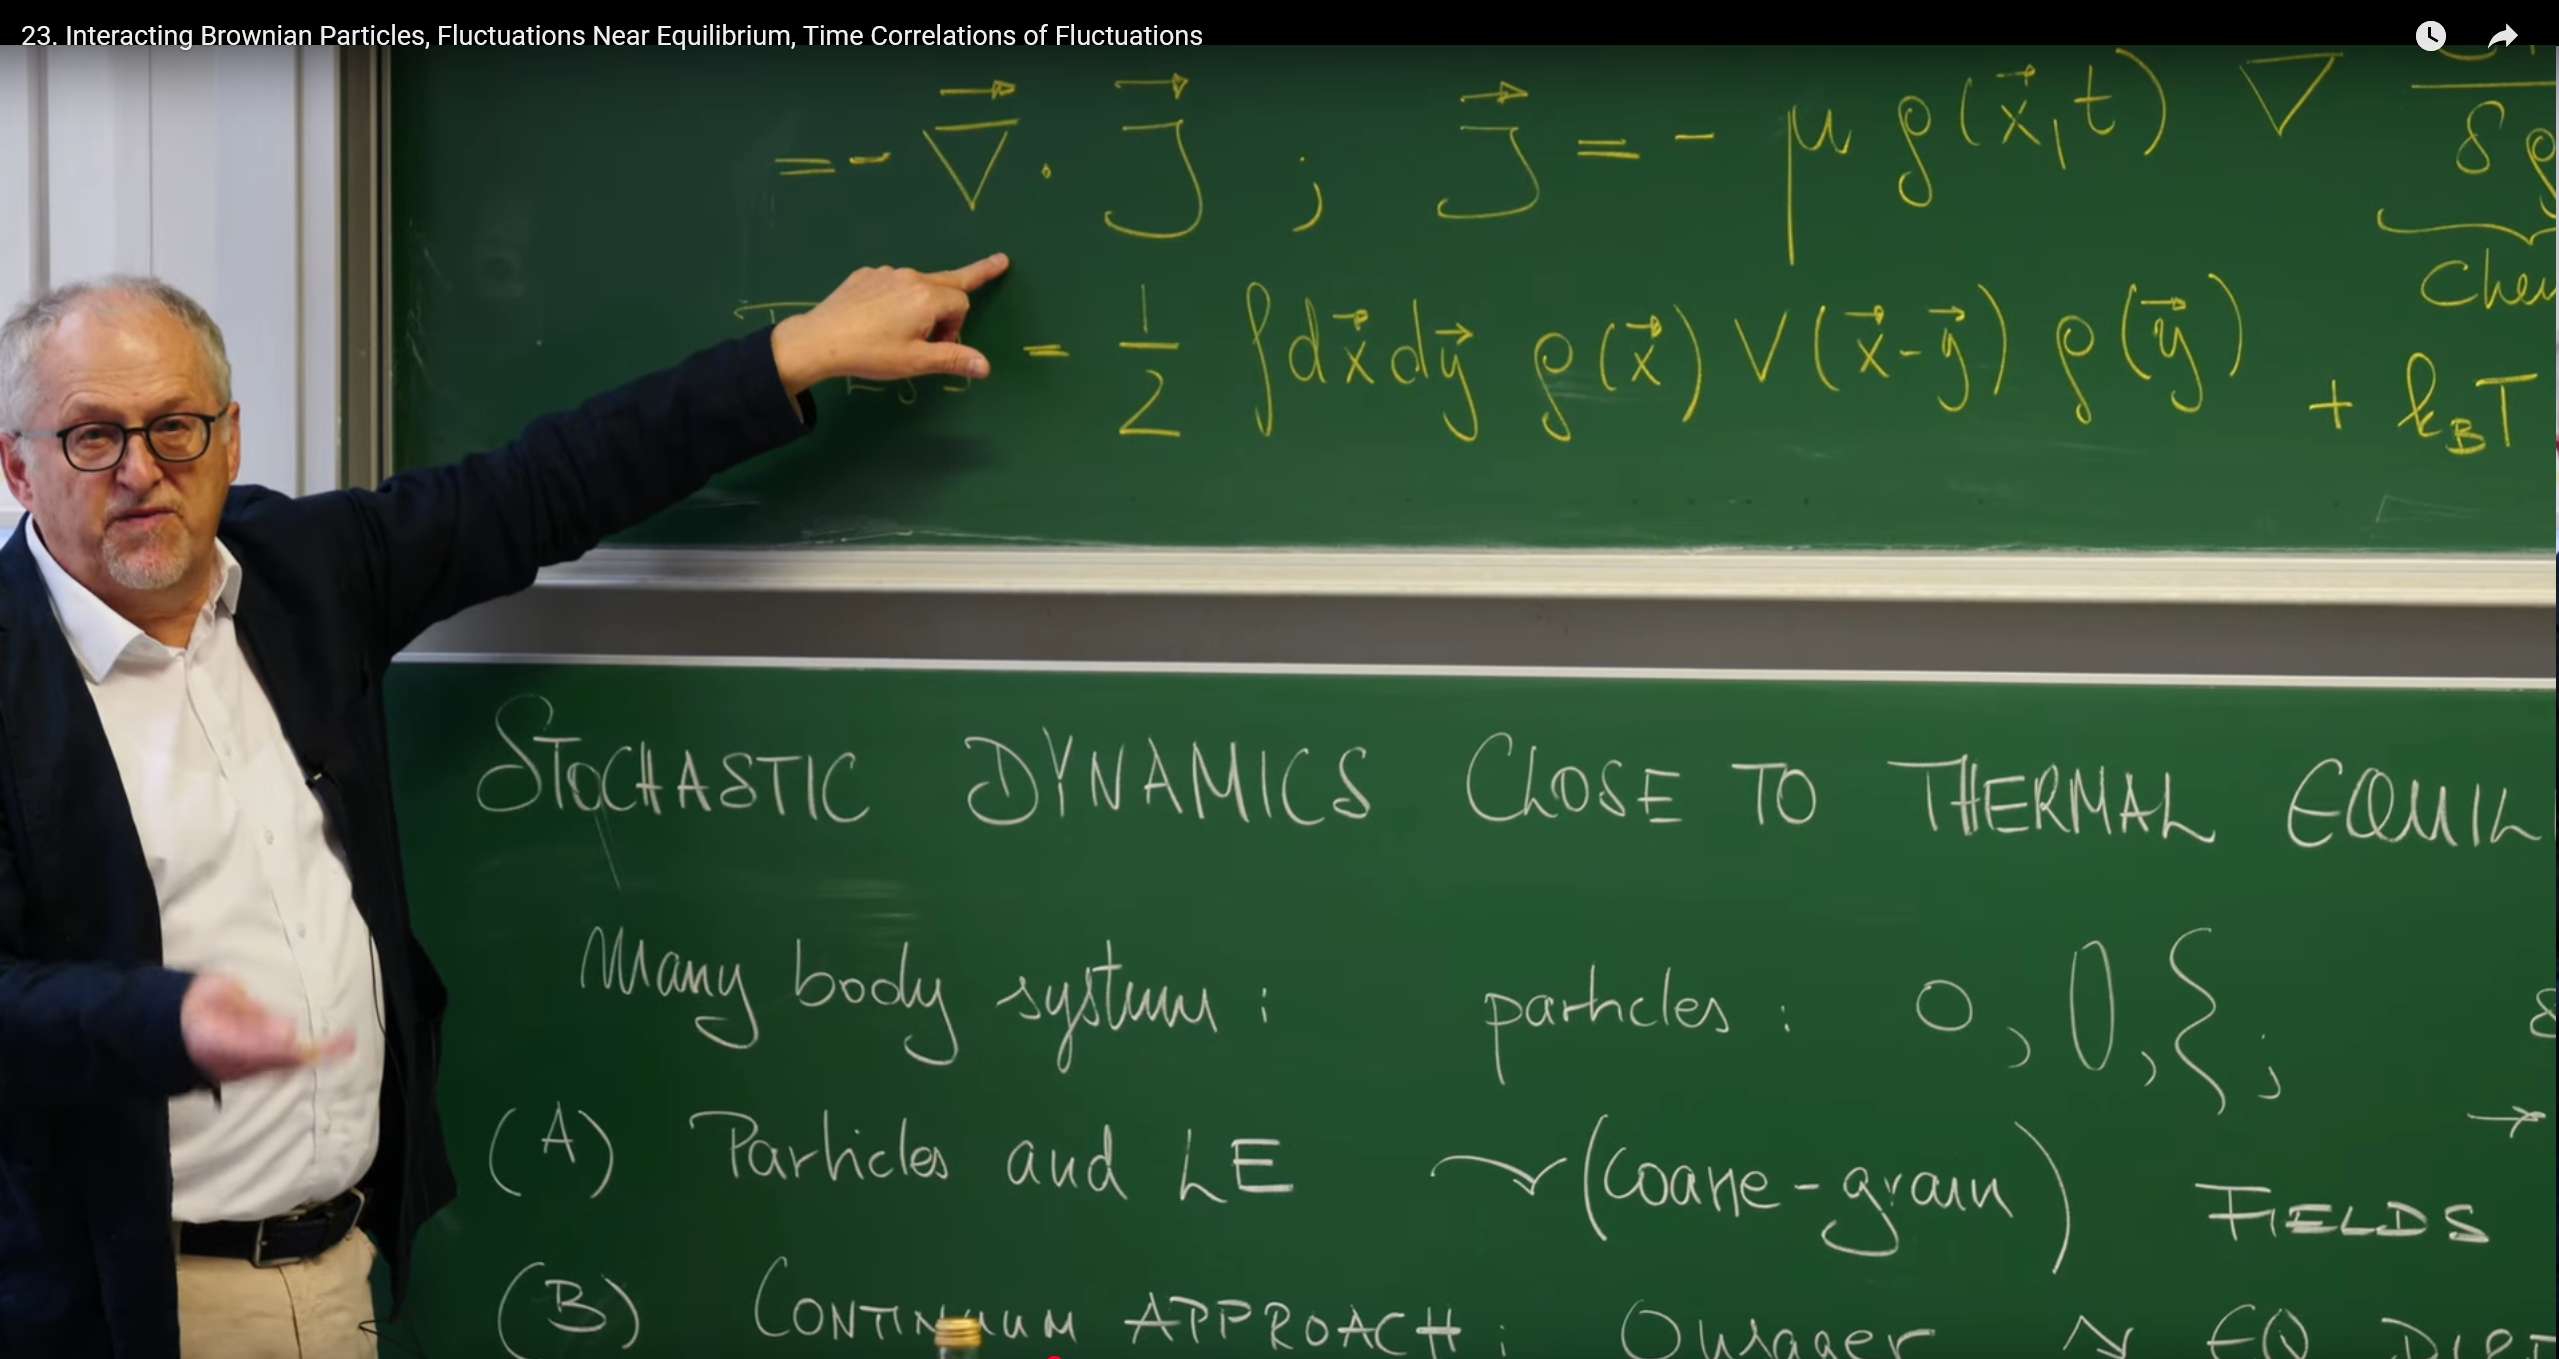 23. Interacting Brownian Particles, Fluctuations Near Equilibrium, Time Correlations of Fluctuations
= - ∇⃗ · J⃗ ; J⃗ = - μ ρ(x⃗,t) ∇ δρ
Chem
= 1/2 ∫dx⃗dy⃗ ρ(x⃗) V(x⃗-y⃗) ρ(y⃗) + k_BT
STOCHASTIC DYNAMICS CLOSE TO THERMAL EQUIL
Many body system : particles : 0, 0, { ;
→
(A) Particles and LE ↝ (coarse-grain) FIELDS
(B) CONTINUUM APPROACH : Onsager EQ